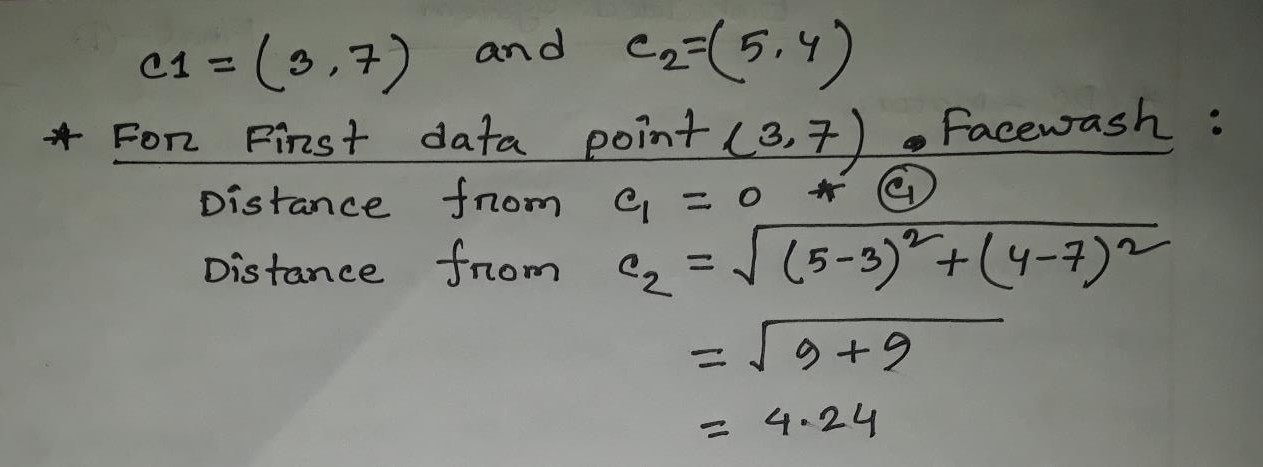 C1 = (3,7) and C₂=(5,4)
* For First data point (3,7) • Facewash :
Distance from C₁ = 0 * C₁
Distance from C₂ = √(5-3)²+(4-7)²
= √9+9
= 4.24